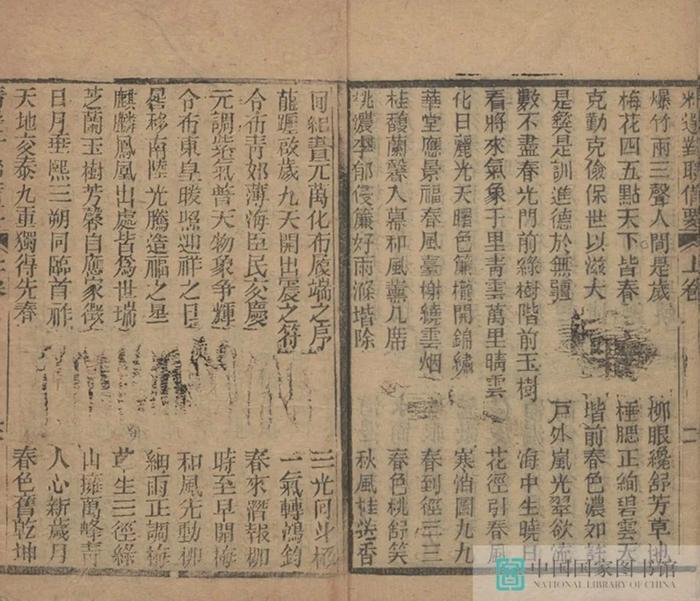 選對聯備要 上卷 二
爆竹兩三聲人間是歲 柳眼纔舒芳草地
梅花四五點天下皆春 腮正絢碧雲天
克勤克儉保世以滋大 堦前春色濃如許
是彛是訓進德於無疆 戶外嵐光翠欲流
數不盡春光門前綠樹階前玉樹 海中生曉日
看將來氣象千里青雲萬里晴雲 花徑引春風
化日麗光天曙色簾櫳開錦繡 寒消圖九九
華堂應景福春風臺榭繞雲烟 春到徑三三
桂馥蘭馨入幕和風薰几席 春色桃舒笑
桃濃李郁侵簾好雨滌堦除 秋風桂送香
紀書元萬化布履端之序 三光同斗極
龍躔啟歲九天開出震之符 一氣轉鴻鈞
令布青郊薄海臣民交慶 春來潛報柳
元調紫氣普天物象爭輝 時至早開梅
令布東皇暖照迎祥之日 和風先動柳
晷移南陸光騰造福之星 細雨正調梅
麒麟鳳凰出處皆為世瑞 草生三徑綠
芝蘭玉樹芳馨自應家徵 山擁萬峰青
日月垂熙三朔同臨首祚 人心新歲月
天地交泰九重獨得先春 春色舊乾坤
中国国家图书馆
NATIONAL LIBRARY OF CHINA